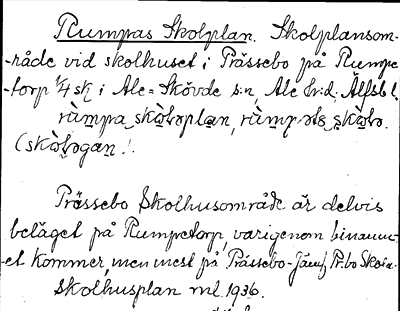 Rumpas Skolplan. Skolplansom-
-råde vid skolhuset i Prässebo på Rumpe-
-torp 1/4 sk i Ale-Skövde s:n, Ale hr:d, Älfsb l.
Prässebo Skolhusområde är delvis
beläget på Rumpetorp, varigenom binamn-
et kommer, men mest på Prässebo-Jämf Pr.bo Skola
Skolhusplan ml. 1936.